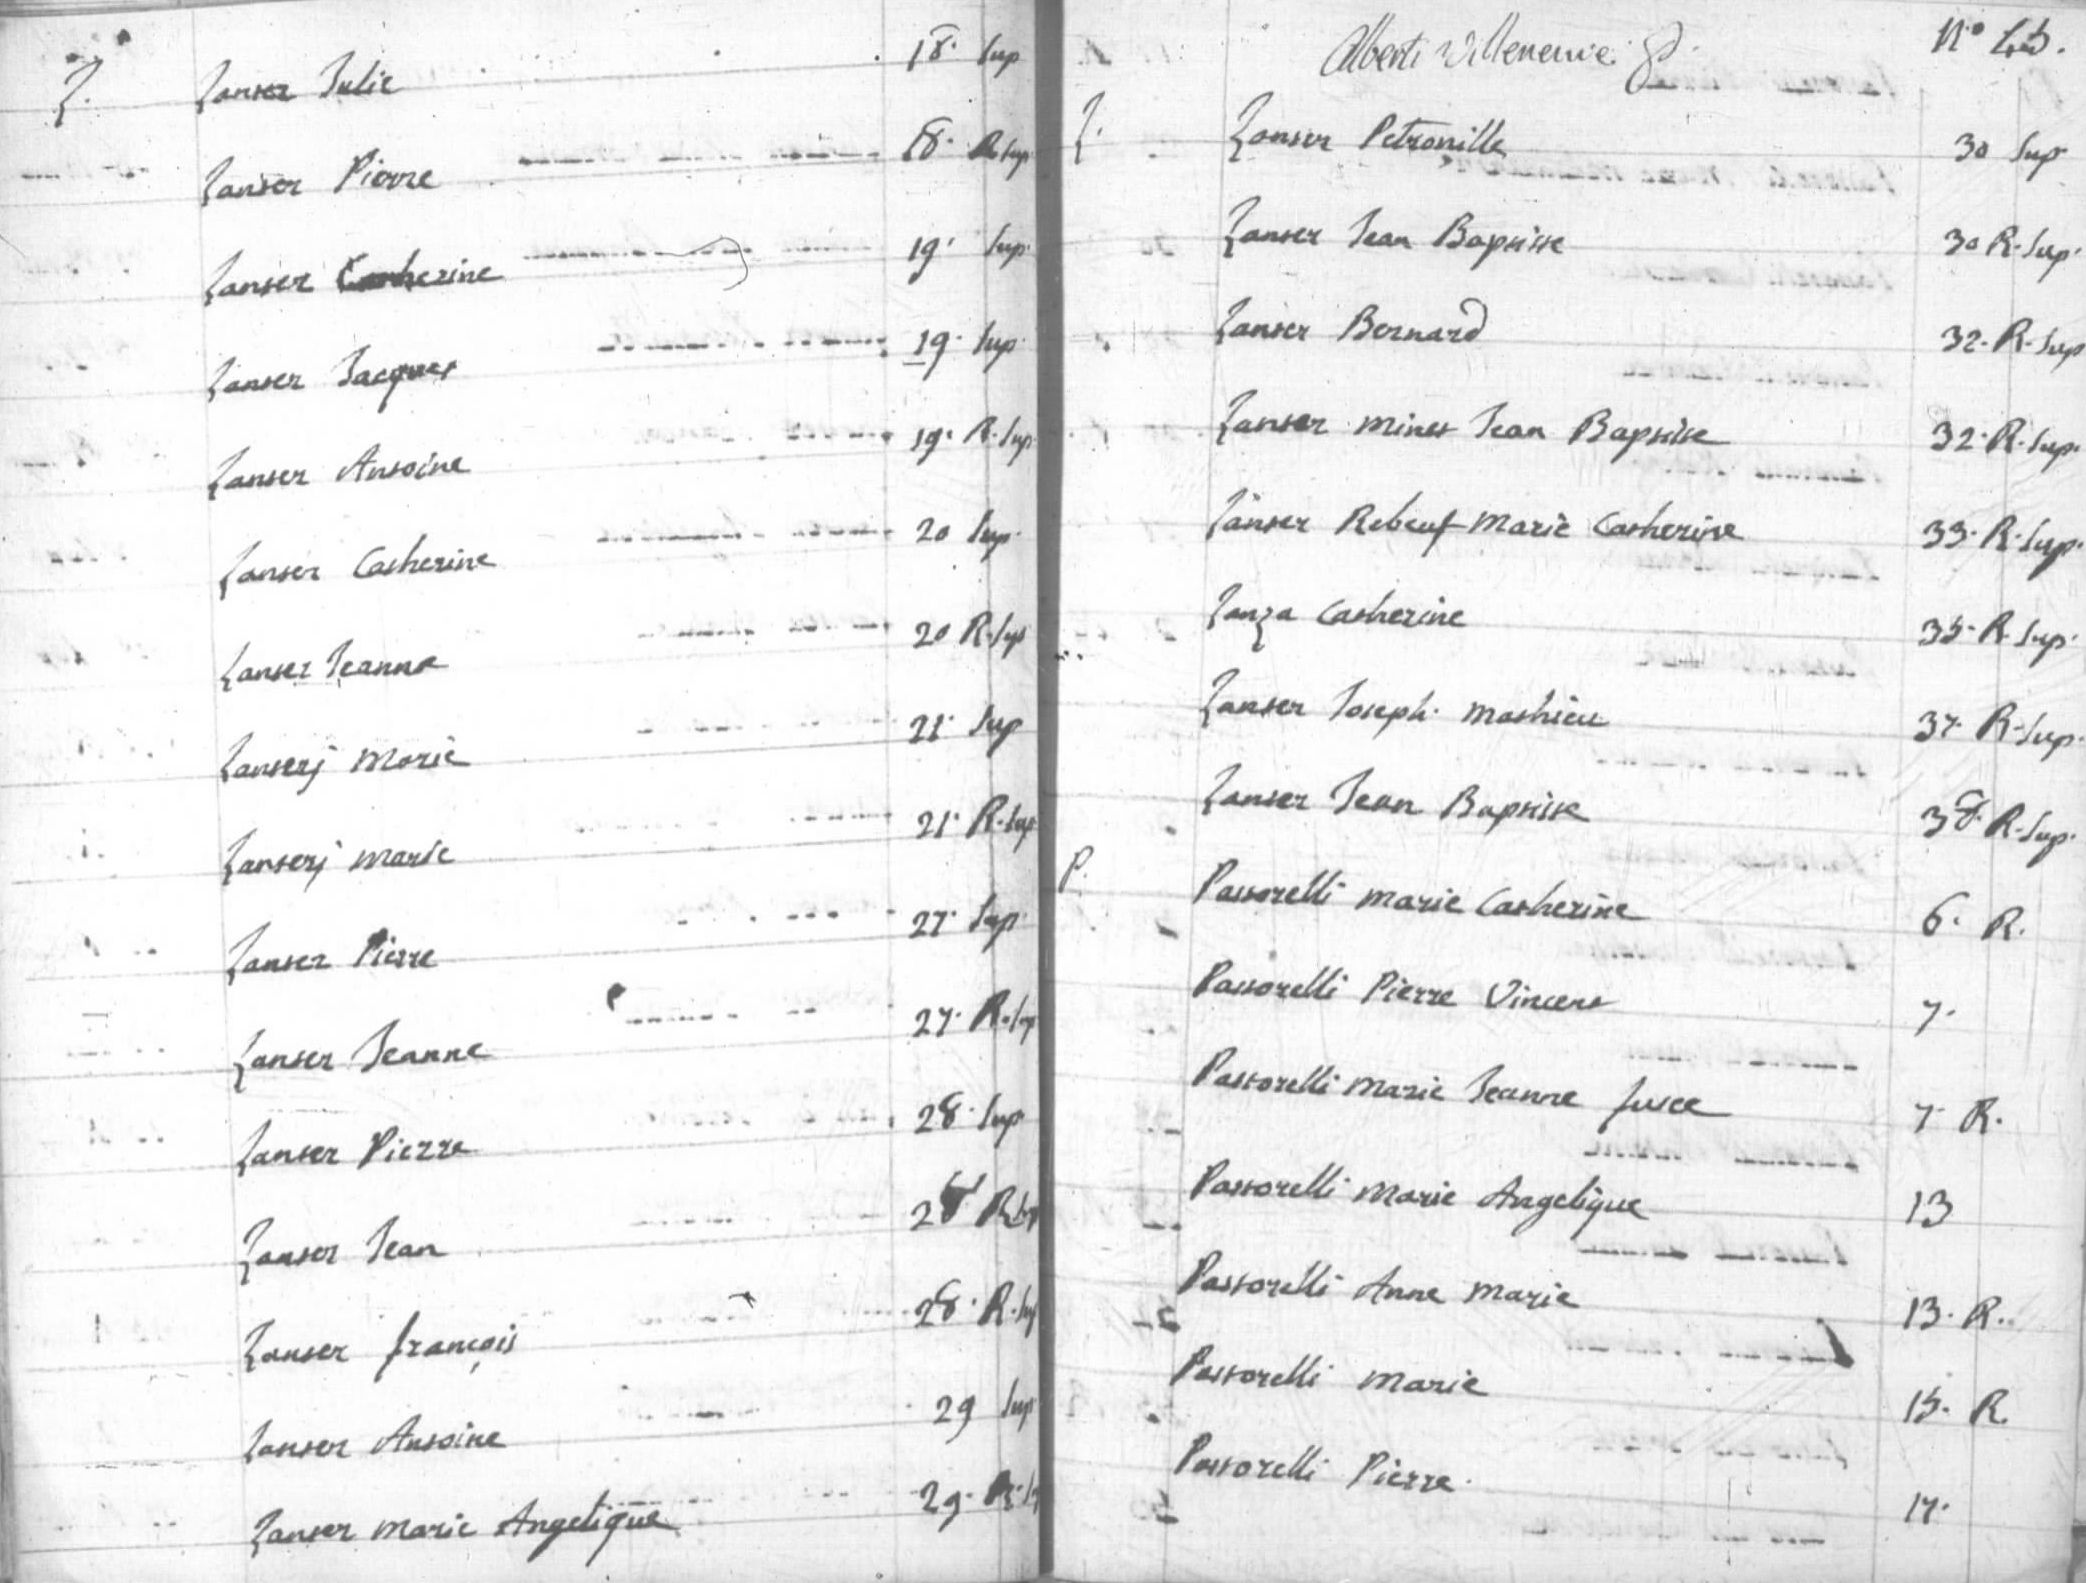 L. Lanter Julie 18. Sup
Lanter Pierre 18. R. Sup
Lanter Catherine 19. Sup.
Lanter Jacques 19. Sup.
Lanter Antoine 19. R. Sup.
Lanter Catherine 20 Sup.
Lanter Jeanne 20 R. Sup
Lanterj Marie 21. Sup
Lanterj Marie 21. R. Sup
Lanter Pierre 27. Sup
Lanter Jeanne 27. R. Sup
Lanter Pierre 28. Sup
Lanter Jean 28 R. Sup
Lanter françois 28. R. Sup
Lanter Antoine 29 Sup
Lanter Marie Angelique 29. R. Sup
Alberti Villeneuve N° 45.
L. Lanter Petronille 30 Sup
Lanter Jean Baptiste 30 R. Sup.
Lanter Bernard 32. R. Sup
Lanter Mines Jean Baptiste 32. R. Sup.
Lanter Rebeuf Marie Catherine 33. R. Sup.
Lanza Catherine 35. R. Sup.
Lanter Joseph Mathieu 37. R. Sup.
Lanter Jean Baptiste 38. R. Sup.
P. Pastorelli Marie Catherine 6. R.
Pastorelli Pierre Vincent 7.
Pastorelli Marie Jeanne 7. R.
Pastorelli Marie Angelique 13
Pastorelli Anne Marie 13. R.
Pastorelli Marie 15. R.
Pastorelli Pierre. 17.